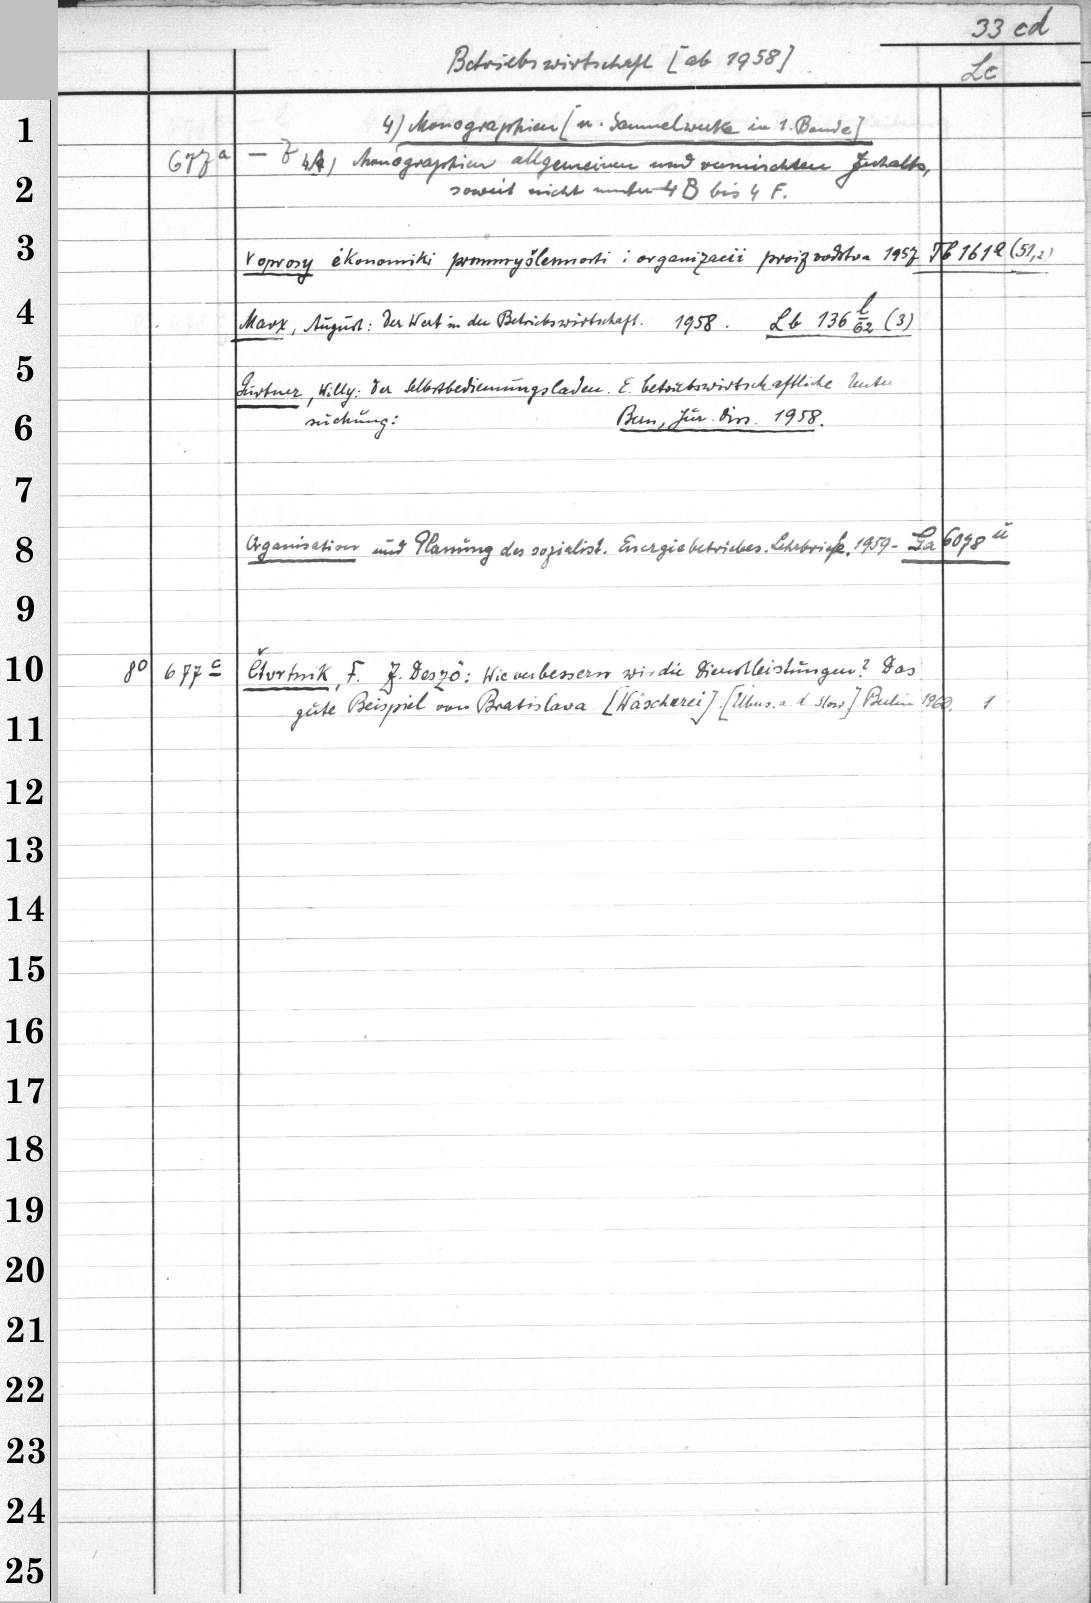 33 cd
Betriebswirtschaft [ab 1958]
Lc
1
4) Monographien [u. Sammelwerke in 1. Bande]
677a — Z 4A) Monographien allgemeinen und vermischten Inhalts,
2
soweit nicht unter 4 B bis 4 F.
3
Voprosy ėkonomiki promyšlennosti i organizacii proizvodstva 1957 Tb 1612 (51,2)
4
Marx, August: Der Wert in der Betriebswirtschaft. 1958. Lb 136 l/62 (3)
5
Gürtner, Willy: Der Selbstbedienungsladen. E. betriebswirtschaftliche Unter
6
suchung: Bern, Jur. Diss. 1958.
7
8
Organisation und Planung des sozialist. Energiebetriebes. Lehrbriefe. 1959- Ga 6098 ü
9
10
8º 677c Čtvrtník, F. J. Deszö: Wie verbessern wir die Dienstleistungen? Das
gute Beispiel von Bratislava [Wäscherei]. [Übers. a. d. Slow.] Berlin 1960. 1
11
12
13
14
15
16
17
18
19
20
21
22
23
24
25